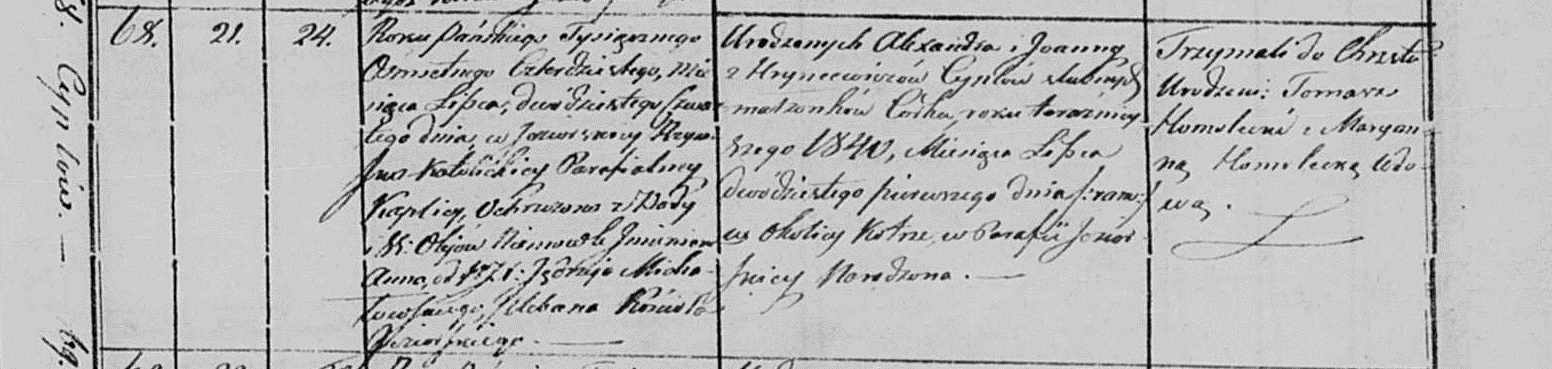 68.
21.
24.
Roku Pańskiego Tysiącznego
Osmsetnego Czterdziestego, Mie
siąca Lipca, dwódziestego Czwar
tego dnia, w Rzym
sko-Katolickiey Parafialney
Kaplicy, Ochrzczona z Wody
Niemowle Imieniem
Anna, od J: X: Jędrzeja Micha
łowskiego, Plebana Kościoła
Jeziorskiego.
Urodzonych Alexandra i Joanny
z Hryncewiczów Cyplów slubnych
małżonków Córka, roku teraźniey
szego 1840, Miesiąca Lipca
dwódziestego pierwszego dnia
w Okolicy Kotrze, w Parafii Jezior
skiey Narodzona.
Trzymali do Chrztu
Urodzeni: Tomasz
Homolicki i Maryan
na Homolicka Wdo
wa.
Cyplów.